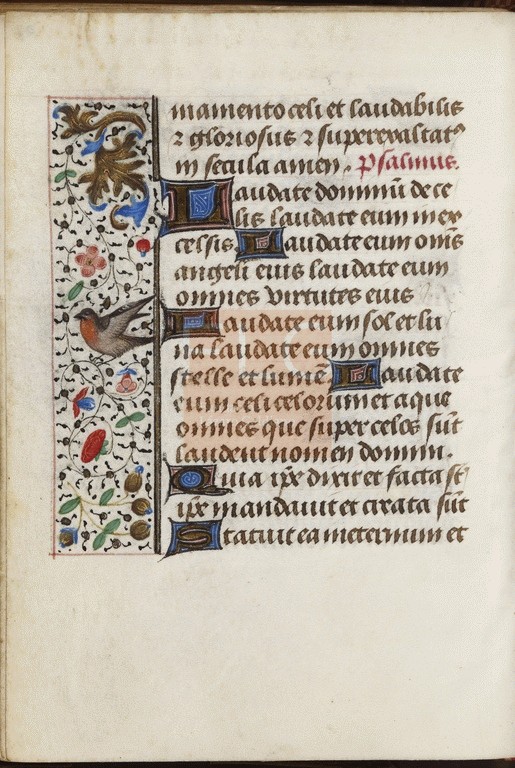 mamento celi et laudabilis
⁊ gloriosus ⁊ superexaltatꝰ
in secula amen. Psalmus.
Laudate dominū de ce
lis laudate eum in ex
celsis. Laudate eum om̄s
angeli eius laudate eum
omnes virtutes eius
Laudate eum sol et lu
na laudate eum omnes
stelle et lumē. Laudate
eum celi celorum et aque
omnes que super celos sūt
laudent nomen domini.
Quia ip̄e dixit et facta sūt
ip̄e mandauit et creata sūt
Statuit ea in eternum et